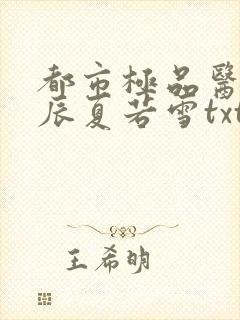 都市極品醫
辰夏若雪txt
王希明